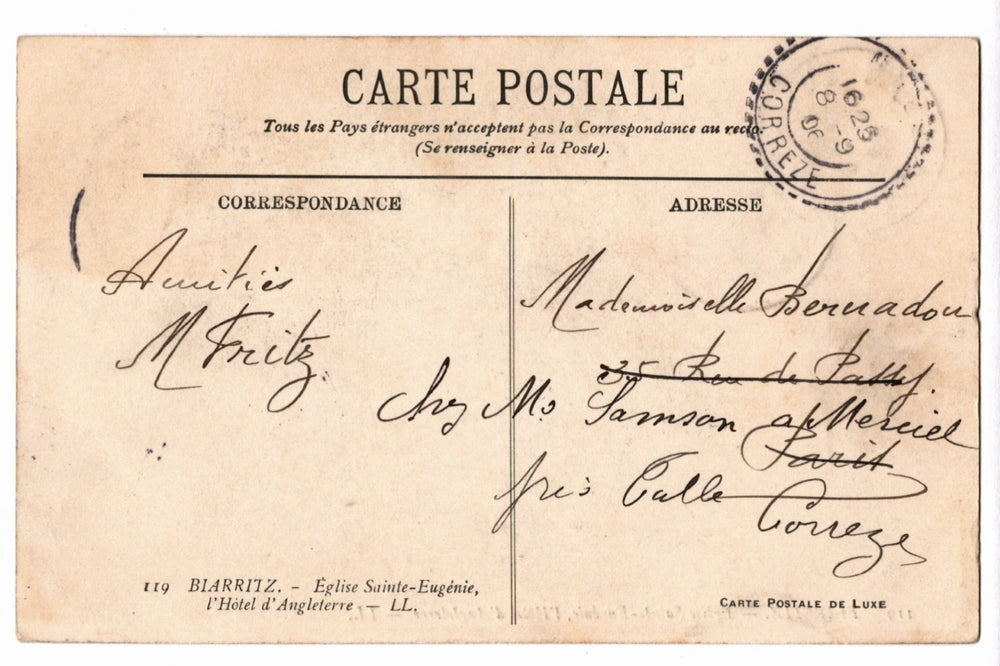 CARTE POSTALE
Tous les Pays étrangers n'acceptent pas la Correspondance au recto.
(Se renseigner à la Poste).
CORREZE
16 25
8 -9
06
CORRESPONDANCE
Amitiés
M Fritz
ADRESSE
Mademoiselle Bernadou
35 Rue de Passy
Chez Mr Samson a Merciel
Paris
près Tulle
Correze
119 BIARRITZ. - Église Sainte-Eugénie,
l'Hôtel d'Angleterre - LL.
CARTE POSTALE DE LUXE